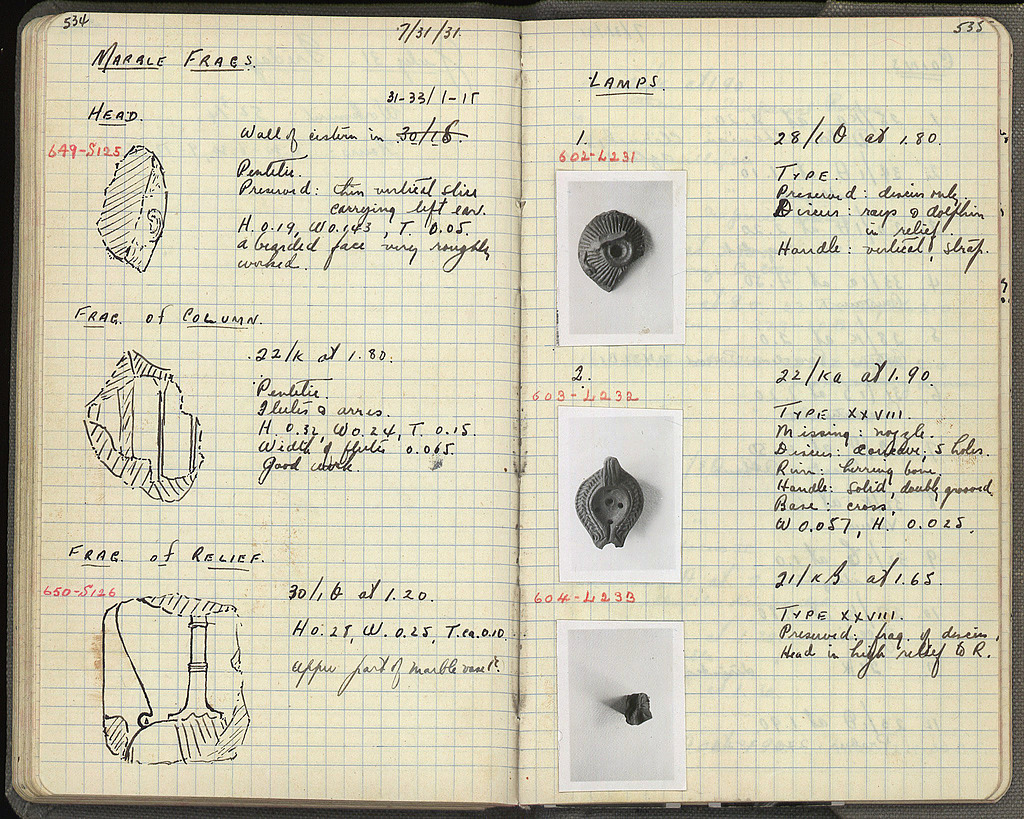 534
7/31/31.
MARBLE FRAGS.
31-33/1-15
HEAD.
Wall of cistern in 30/18.
649-S125
Pentelic.
Preserved: thin vertical slice
carrying left ear.
H. 0.19, W 0.143, T. 0.05.
a bearded face very roughly
worked.
FRAG. of COLUMN.
22/K at 1.80.
Pentelic.
Flutes & arris.
H. 0.32, W 0.24, T. 0.15.
Width of flutes 0.065.
Good work.
FRAG. of RELIEF.
650-S126
30/1 Θ at 1.20.
H 0.25, W. 0.25, T. ca. 0.10.
upper part of marble vase?
535
LAMPS.
1.
28/1 Θ at 1.80.
602-L231
TYPE.
Preserved: discus only.
Discus: rays & dolphin
in relief.
Handle: vertical, strap.
2.
22/Ka at 1.90.
603-L232
TYPE XXVIII.
Missing: nozzle.
Discus: concave, 5 holes.
Rim: herring bone.
Handle: solid, double grooved.
Base: cross,
W 0.057, H. 0.025.
21/KB at 1.65.
604-L233
TYPE XXVIII.
Preserved: frag. of discus.
Head in high relief to R.